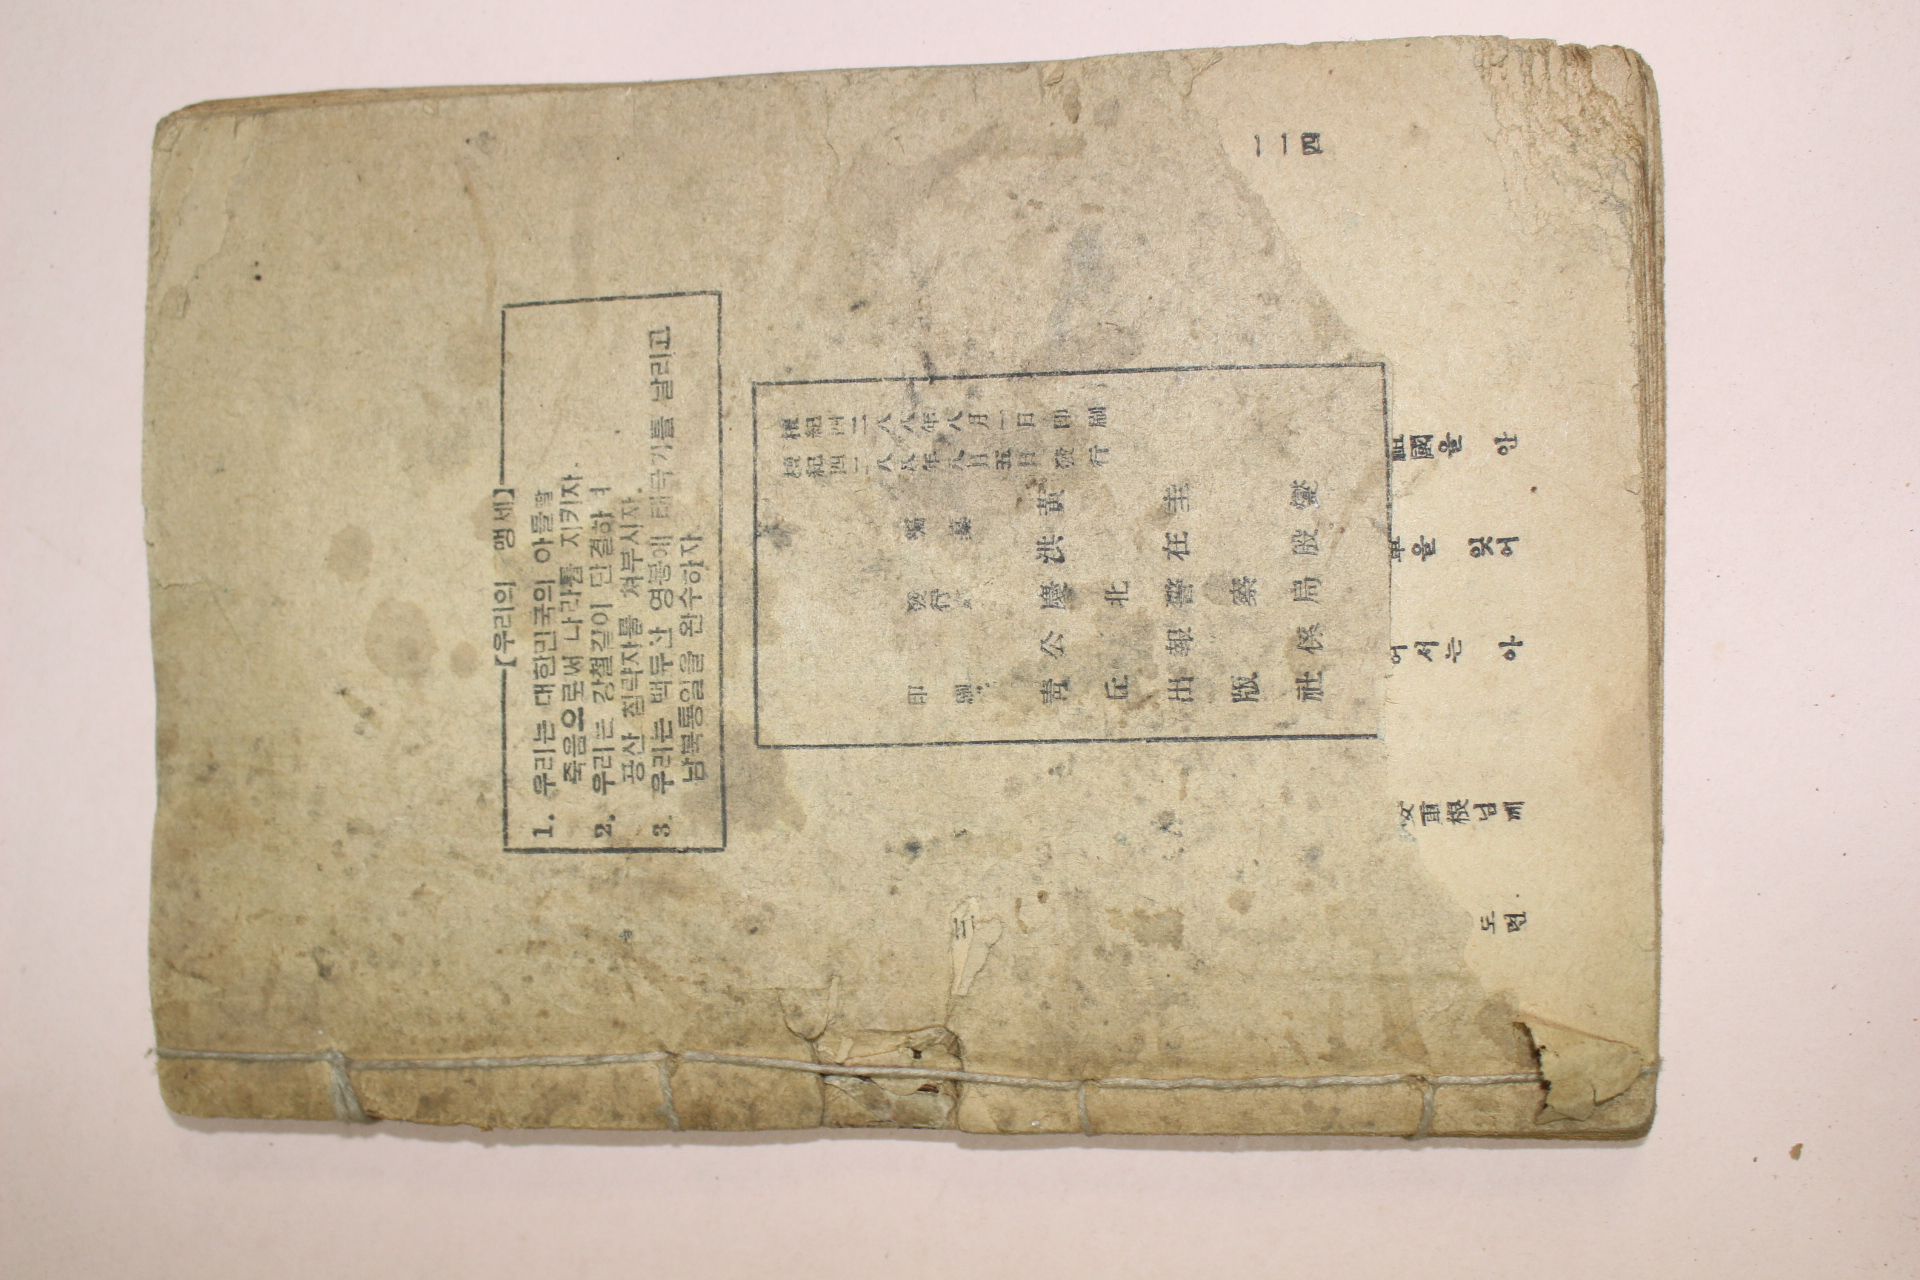 【우리의 맹세】
1. 우리는 대한민국의 아들딸
죽음으로써 나라를 지키자.
2. 우리는 강철같이 단결하여
공산 침략자를 쳐부시자.
3. 우리는 백두산 영봉에 태극기를 날리고
남북통일을 완수하자
檀紀四二八八年八月一日印刷
檀紀四二八八年八月五日發行
編纂 黃圭燮
洪在殷
發行 慶北警察局
公報係
印刷 靑丘出版社
一一四
祖國을
안
을
잊어
어서는
아
安重根님께